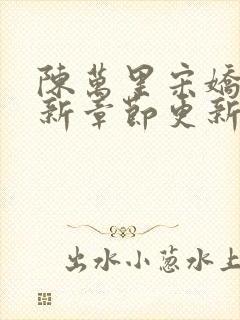 陳萬里宋嬌
新章節更新
出水小葱水上